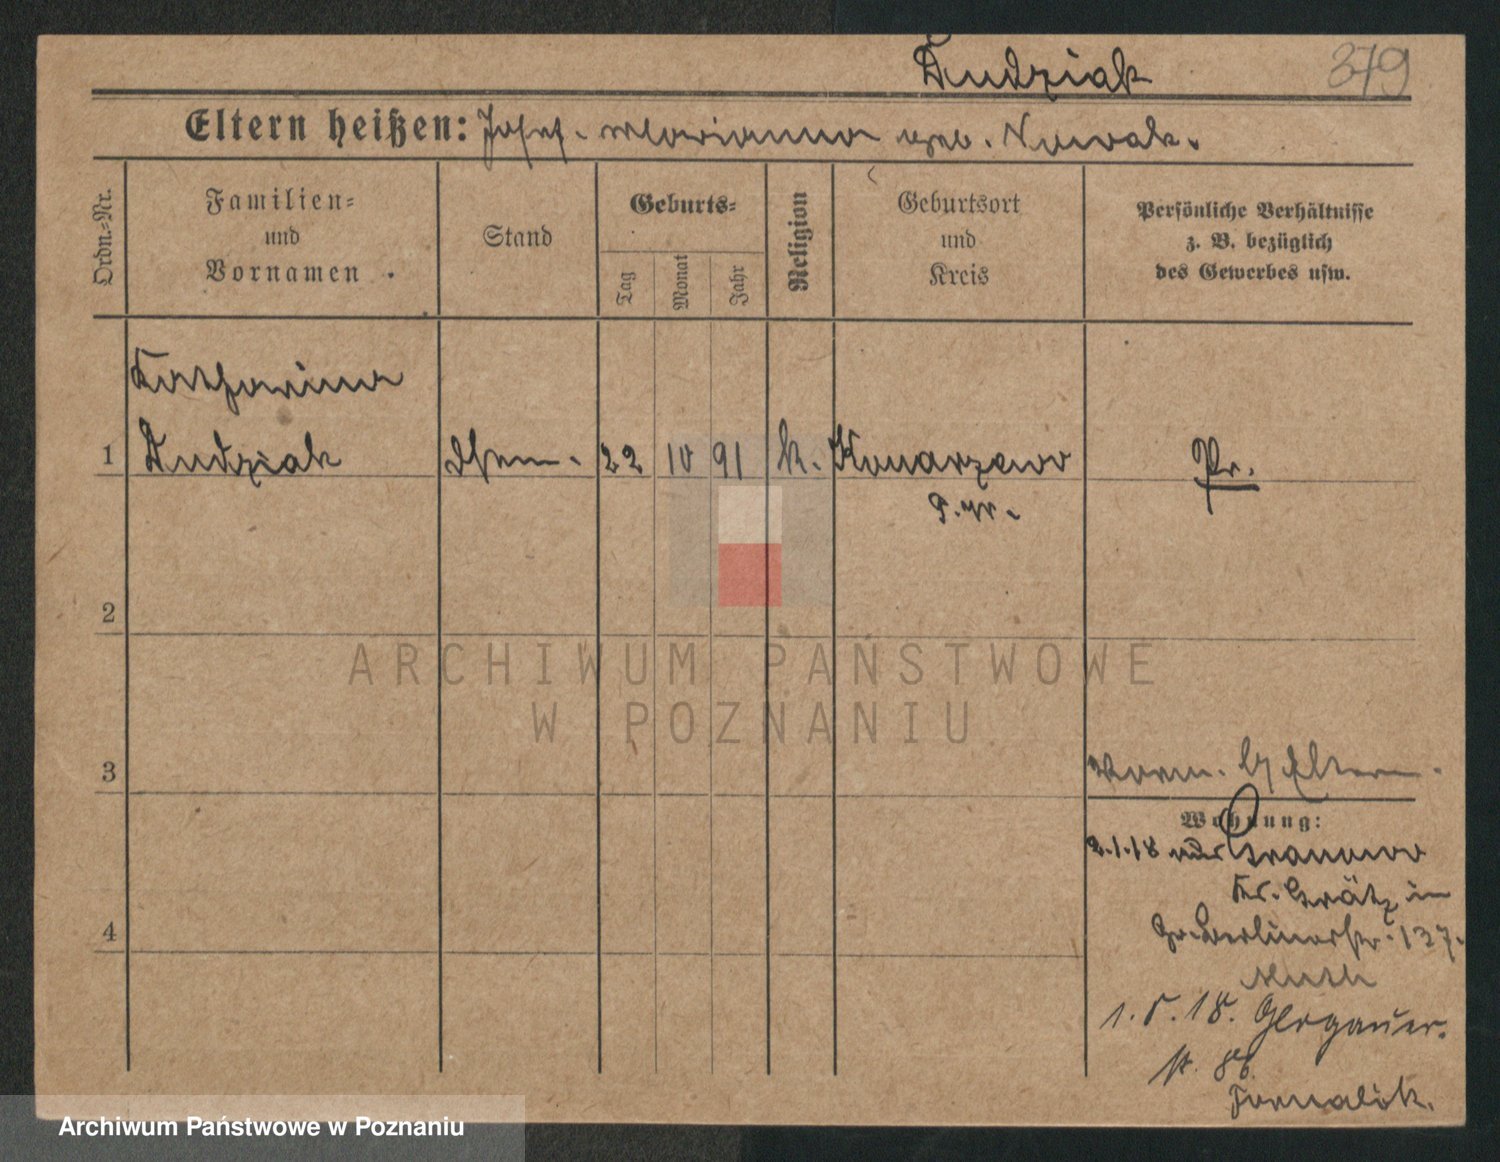 Dudziak 379
Eltern heißen: Josef. Marianna geb. Nowak.
Ordn.-Nr.
Familien-
und
Vornamen
Stand
Geburts-
Tag
Monat
Jahr
Religion
Geburtsort
und
Kreis
Persönliche Verhältnisse
z. B. bezüglich
des Gewerbes usw.
Katharina
1 Dudziak 22 10 91 k. Konarzewo Pr.
2
3 Eltern.
Wohnung:
2.1.18 aus Granowo
Kr. Grätz in
Gr. Berlinerstr. 137.
Muth
1.5.18. Glogauer.
str. 86.
4
ARCHIWUM PAŃSTWOWE
W POZNANIU
Archiwum Państwowe w Poznaniu